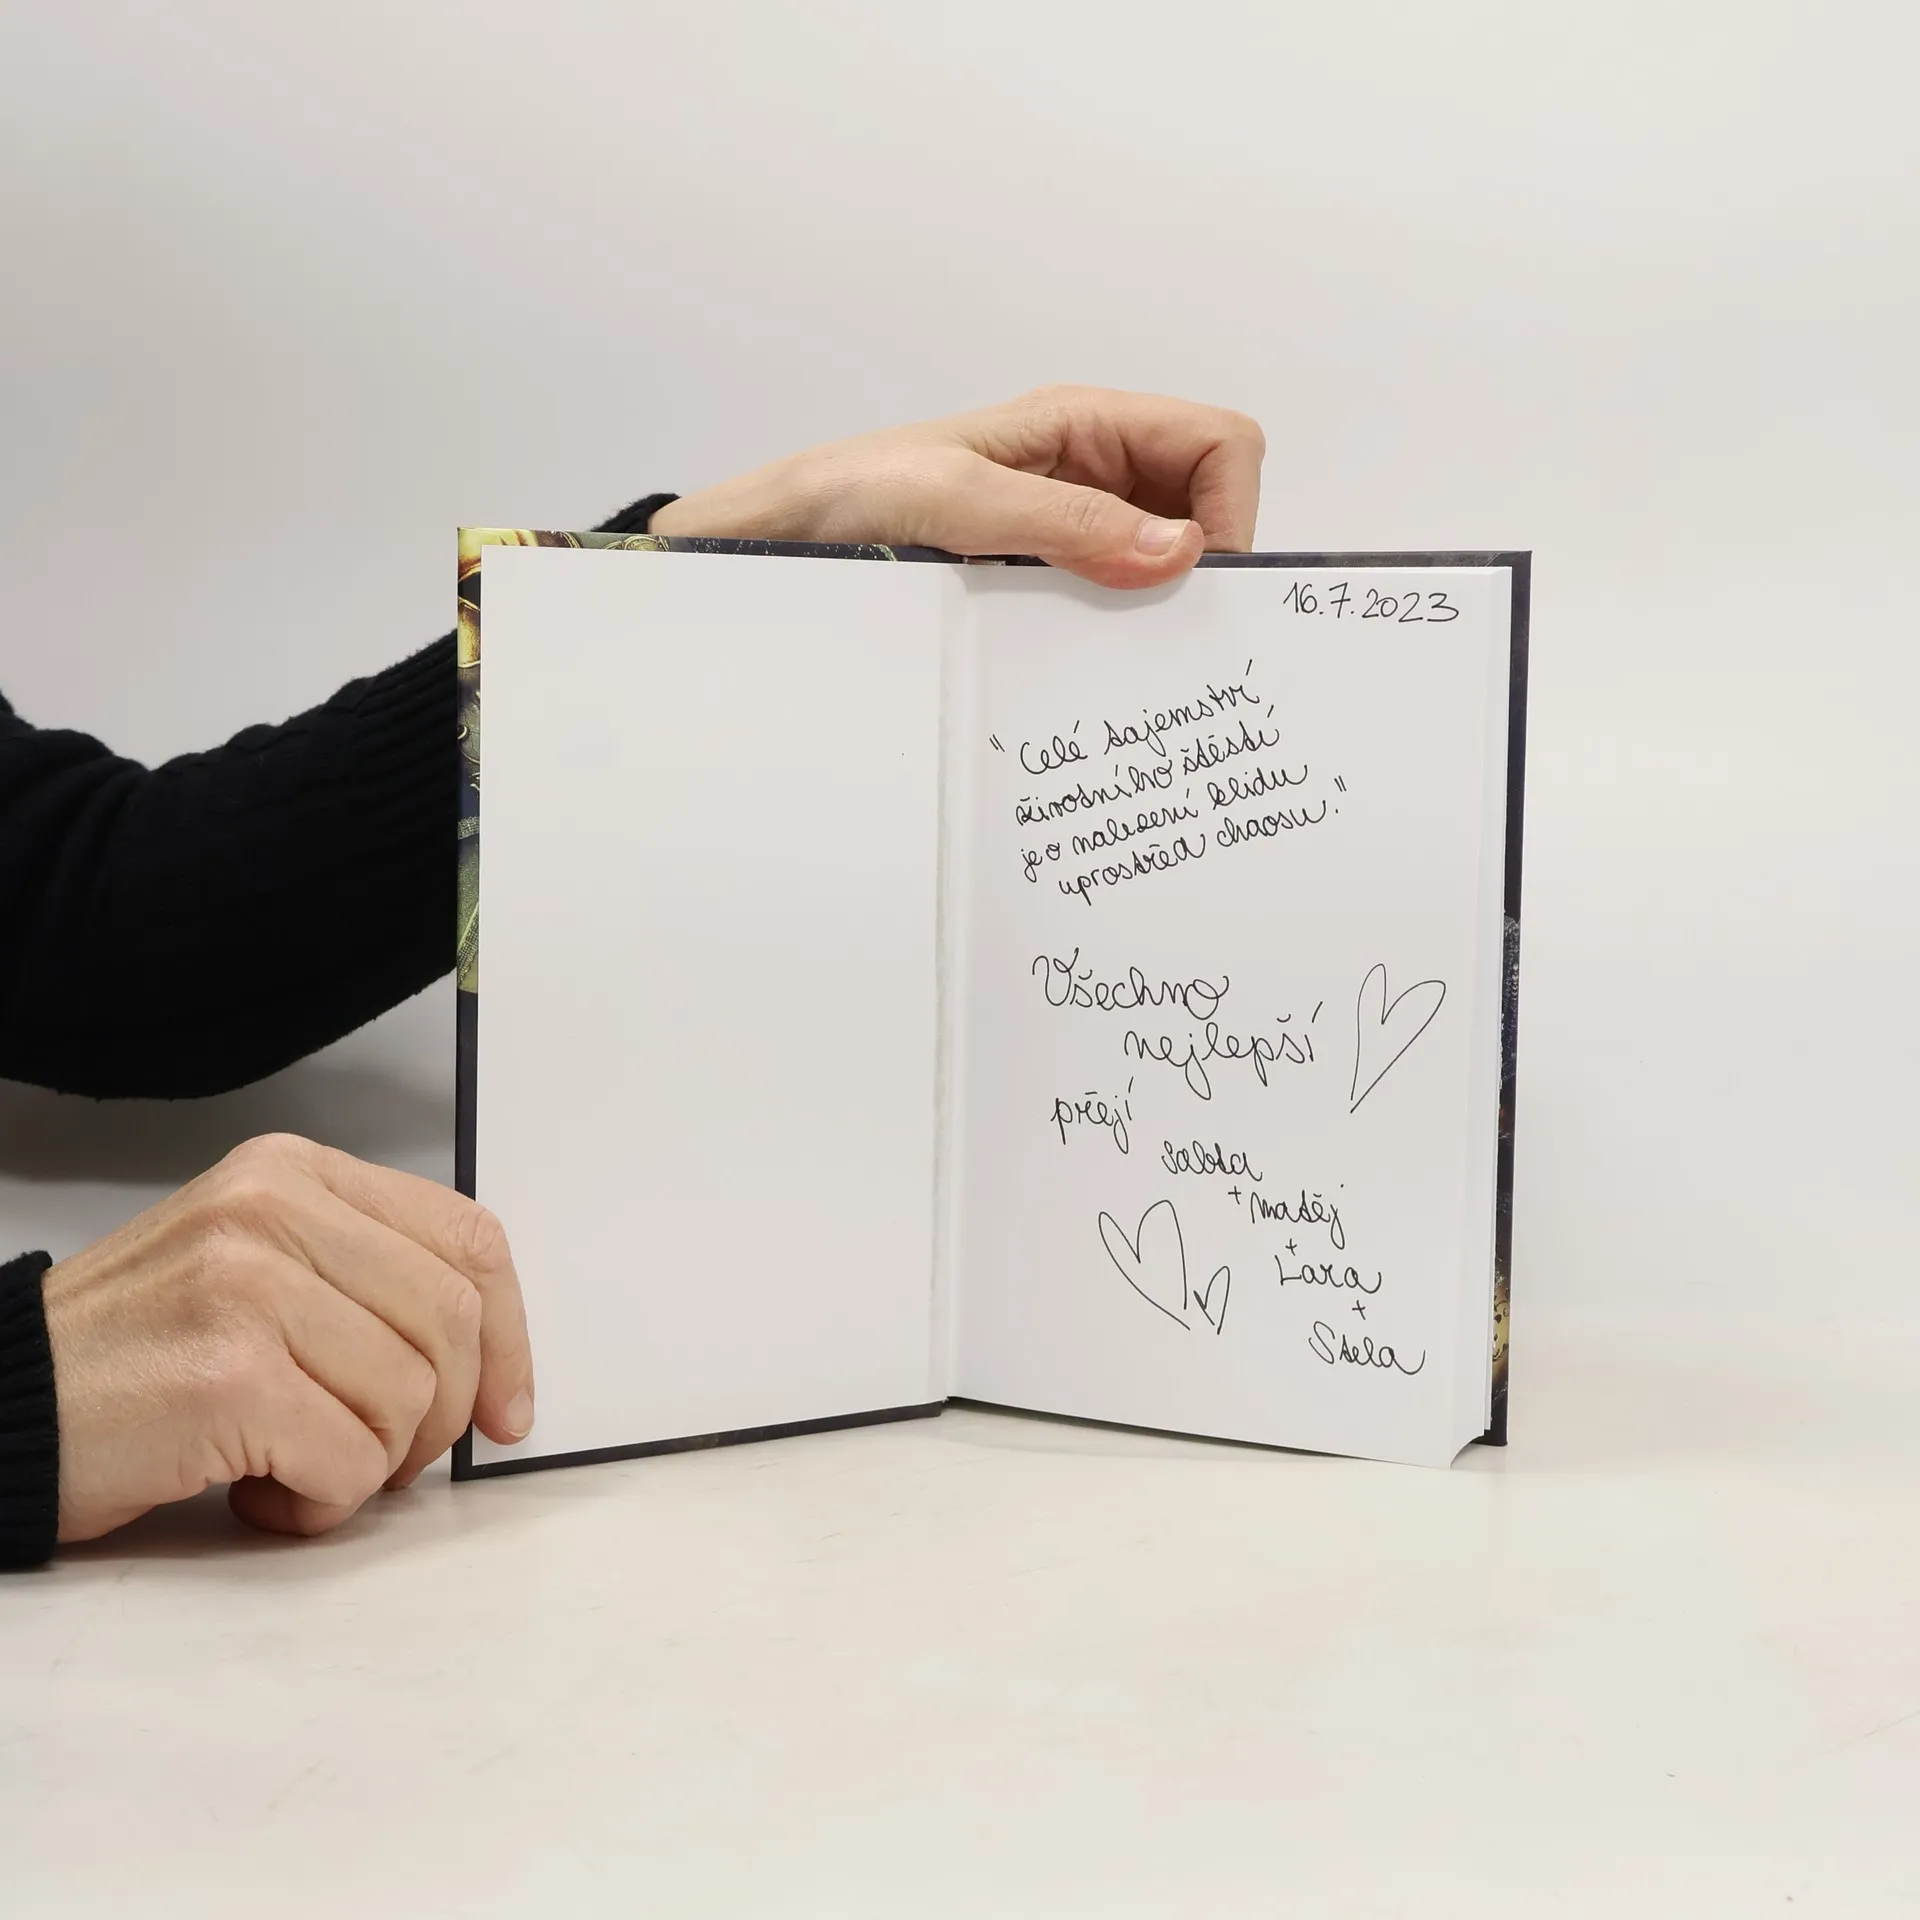 16.7.2023
"Celé tajemství
životního štěstí
je o nalezení klidu
uprostřed chaosu."
Všechno
nejlepší
přejí
+ Matěj
+
Lara
+
Stela